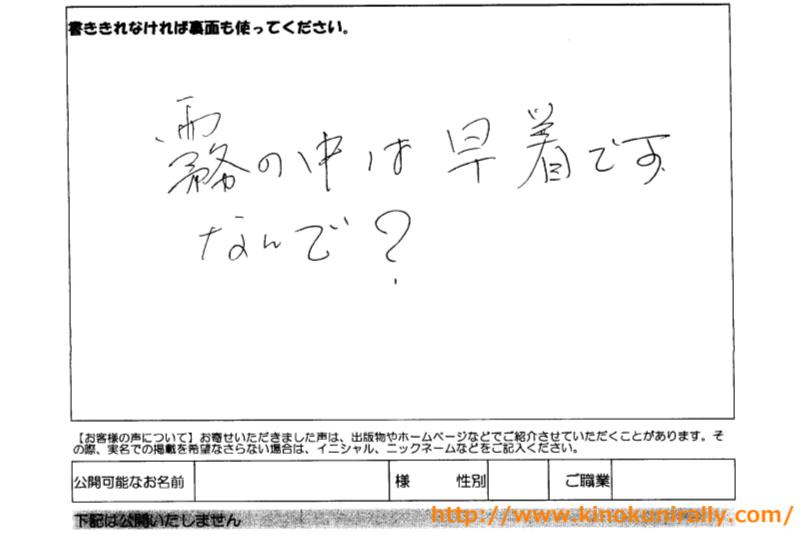 書ききれなければ裏面も使ってください。
霧の中は早着です
なんで?
【お客様の声について】お寄せいただきました声は、出版物やホームページなどでご紹介させていただくことがあります。そ
の際、実名での掲載を希望なさらない場合は、イニシャル、ニックネームなどをご記入ください。
公開可能なお名前 様 性別 ご職業
下記は公開いたしません
http://www.kinokunirally.com/